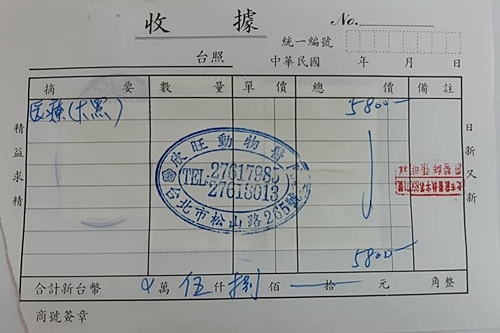 收 據
No.
統一編號
台照
中華民國 年 月 日
摘 要 數 量 單 價 總 價 備 註
医療(大黑) 5800-
精益求精
日新又新
欣旺動物醫
TEL:27617985
27618013
台北市松山路265號
5800-
合計新台幣 萬 伍 仟 捌 佰 拾 元 角整
商號簽章